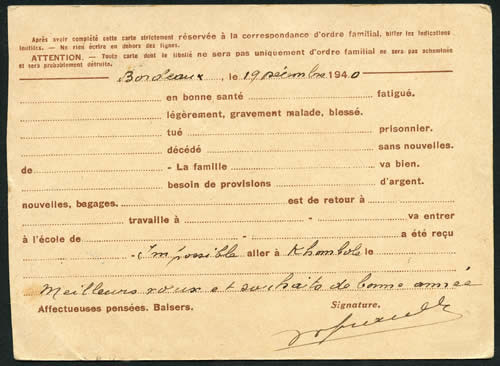 Après avoir complété cette carte strictement réservée à la correspondance d'ordre familial, biffer les indications
inutiles. — Ne rien écrire en dehors des lignes.
ATTENTION. — Toute carte dont le libellé ne sera pas uniquement d'ordre familial ne sera pas acheminée
et sera probablement détruite.
Bordeaux, le 19 décembre 1940
en bonne santé fatigué.
légèrement, gravement malade, blessé.
tué prisonnier.
décédé sans nouvelles.
de - La famille va bien.
besoin de provisions d'argent.
nouvelles, bagages. est de retour à
travaille à va entrer
à l'école de a été reçu
Impossible aller à Khombole le
Meilleurs voeux et souhaits de bonne année
Affectueuses pensées. Baisers. Signature.